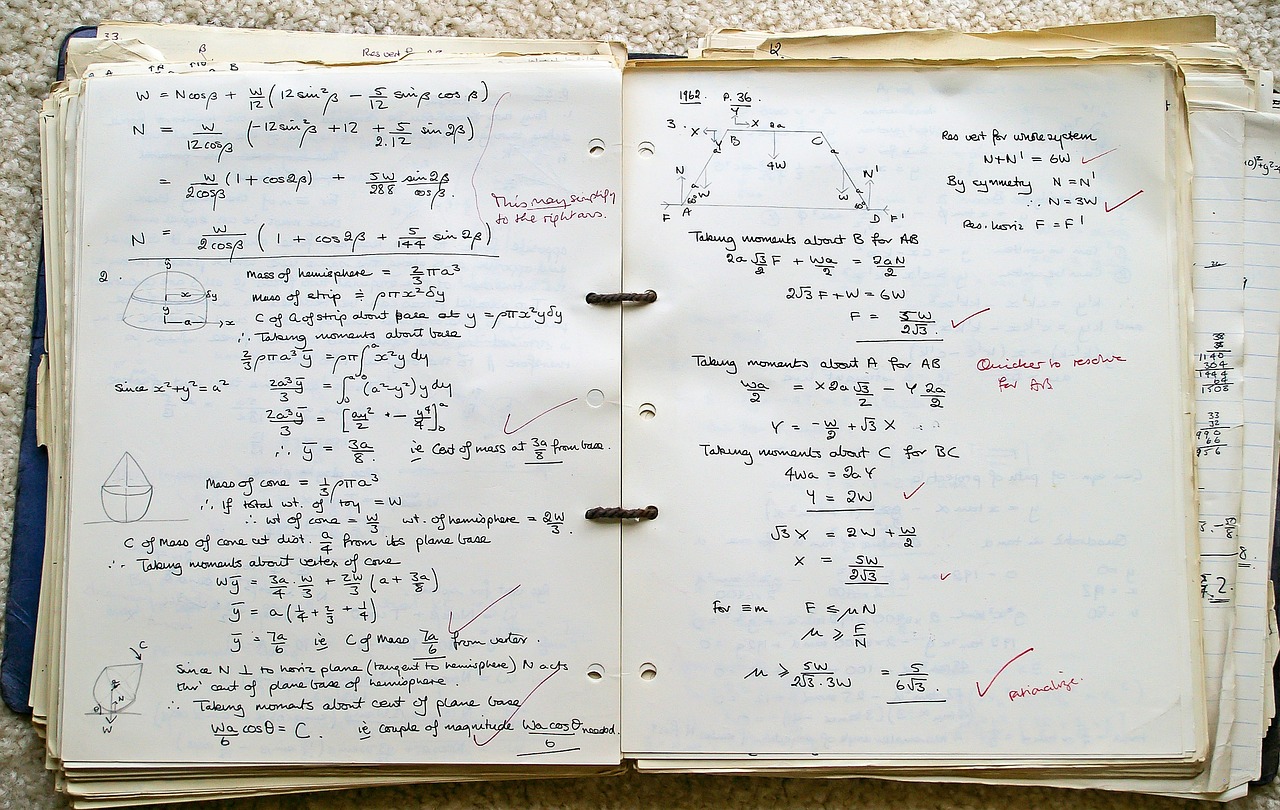 33.
β
Res vert
B
W = N cosβ + W/12 (12 sin²β − 5/12 sinβ cosβ)
N = W/12cosβ (−12 sin²β + 12 + 5/2.12 sin 2β)
= W/2cosβ (1 + cos2β) + 5W/288 sin2β/cosβ.
This may simplify
to the right ans.
N = W/2cosβ (1 + cos2β + 5/144 sin 2β)
2.
y
x δy
y
a x
Mass of hemisphere = 2/3 πa³
Mass of strip ≑ ρπx²δy
C of G of strip about base at y = ρπx²yδy
∴ Taking moments about base
2/3 ρπa³ȳ = ρπ∫₀ᵃ x²y dy
Since x²+y² = a² 2a³ȳ/3 = ∫₀ᵃ (a²−y²) y dy
2a³ȳ/3 = [ay²/2 − y⁴/4]₀ᵃ
∴ ȳ = 3a/8 ie Cent of mass at 3a/8 from base.
Mass of cone = 1/3 ρπa³
∴ If total wt. of toy = W
∴ wt of cone = W/3 wt. of hemisphere = 2W/3.
C of Mass of cone at dist. a/4 from its plane base
∴ Taking moments about vertex of cone
Wȳ = 3a/4 · W/3 + 2W/3 (a + 3a/8)
ȳ = a(1/4 + 2/3 + 1/4)
ȳ = 7a/6 ie C of Mass 7a/6 from vertex.
C
N
θ
W
Since N ⊥ to horiz plane (tangent to hemisphere) N acts
thro' cent of plane base of hemisphere.
∴ Taking moments about cent of plane base
Wa/6 cosθ = C. ie couple of magnitude Wa cosθ/6 needed.
12.
1962. P. 36.
Y
3. X X 2a
B C
a 4W a
N N'
a W W a
60° 60°
F A D F'
Res vert for whole system
N+N' = 6W
By symmetry N = N'
∴ N = 3W
Res. horiz F = F'
Taking moments about B for AB
2a √3/2 F + Wa/2 = 2aN/2
2√3 F + W = 6W
F = 5W/2√3.
Taking moments about A for AB
Quicker to resolve
for AB
Wa/2 = X 2a √3/2 − Y 2a/2
Y = −W/2 + √3 X
Taking moments about C for BC
4Wa = 2aY
Y = 2W
√3 X = 2W + W/2
X = 5W/2√3
For ≡m F ≤ μN
μ ≥ F/N
μ ≥ 5W/2√3.3W = 5/6√3.
rationalize.
38
38
1140
304
1444
64
1508
33
32
990
66
956
8.
2.